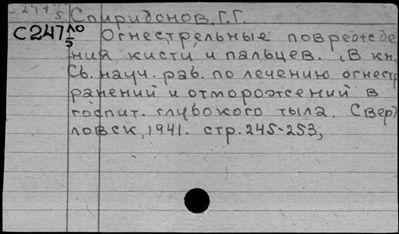 Спиридонов, Г.Г.
С247 Огнестрельные поврежде
5 ния кисти и пальцев. В кн.
Сб. науч. раб. по лечению огнестр
ранений и отморожений в
госпит. глубокого тыла. Сверд
ловск, 1941. стр. 245-253,